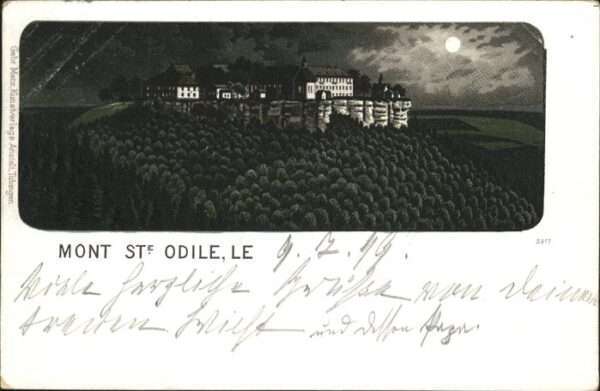 Gebr. Metz, Kunstverlags-Anstalt, Tübingen.
MONT STE ODILE, LE 9. 7. 99.
Viele herzliche Grüße von Deinem
treuen und dessen Papa.